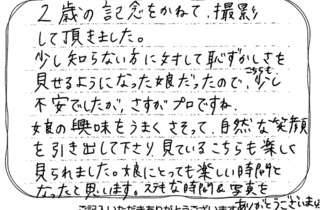 2歳の記念をかねて、撮影
して頂きました。
少し知らない方に対して恥ずかしさを
見せるようになった娘だったので、こちらも少し
不安でしたが、さすがプロですね。
娘の興味をうまくさそって、自然な笑顔
を引き出して下さり見ているこちらも楽しく
見られました。娘にとっても楽しい時間と
なったと思います。ステキな時間&写真を
ありがとうございま
ご記入いただきありがとうございます